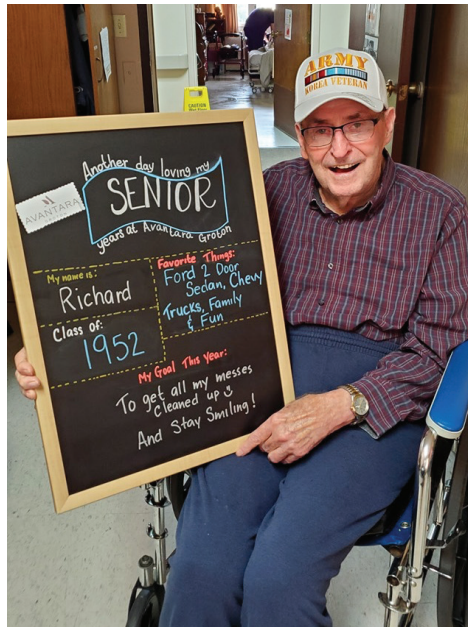 ARMY
KOREA VETERAN
CAUTION
Another day loving my
SENIOR
years at Avantara Groton
AVANTARA
My name is:
Richard
Class of:
1952
Favorite Things:
Ford 2 Door
Sedan, Chevy
Trucks, Family
& Fun
My Goal This Year:
To get all my messes
cleaned up ☺
And Stay Smiling!